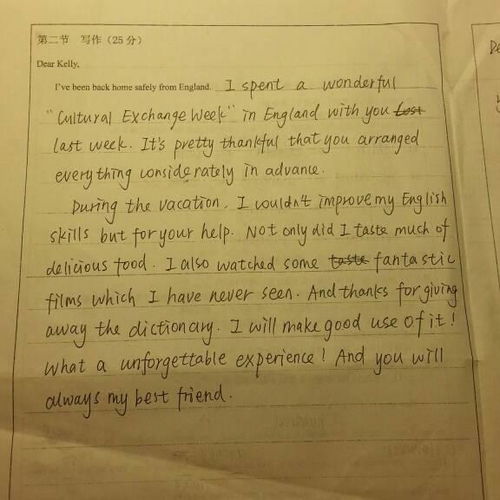 第二节 写作（25 分）
Dear Kelly,
I've been back home safely from England. I spent a wonderful
"Cultural Exchange Week" in England with you
last week. It's pretty thankful that you arranged
everything considerately in advance.
During the vacation, I couldn't improve my English
skills but for your help. Not only did I taste much of
delicious food. I also watched some taste fantastic
films which I have never seen. And thanks for giving
away the dictionary. I will make good use of it!
What a unforgettable experience! And you will
always my best friend.